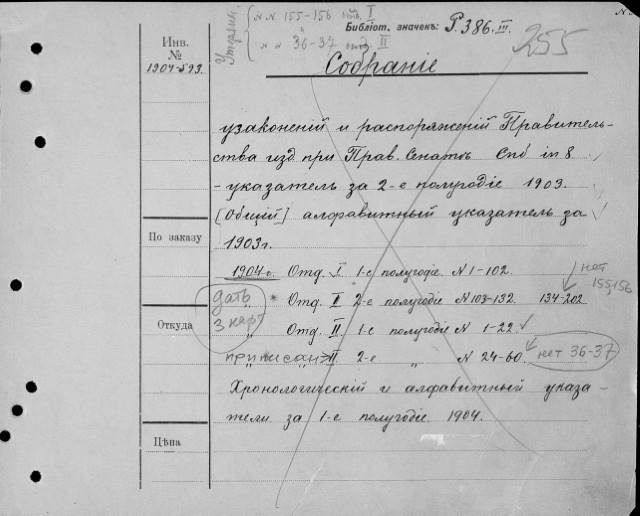 N N 155-156 отд. I
N N 36-37 отд. II
Библіот. значекъ: P.386.III.
255
Инв.
№
1904-593.
Собраніе
узаконеній и распоряженій Правитель-
ства изд. при Прав. Сенатѣ Спб in 8.
- указатель за 2-е полугодіе 1903.
[Общій] алфавитный указатель за
По заказу
1903 г.
1904 г. Отд. I 1-е полугодіе N 1-102.
нет
155,156
дать
3 карт
* Отд. I 2-е полугодіе N 103-132. 134-202
Откуда
" Отд. II. 1-е полугодіе N 1-22
приписан II. 2-е " N 24-60. нет 36-37
Хронологическій и алфавитный указа-
тели за 1-е полугодіе 1904.
Цѣна